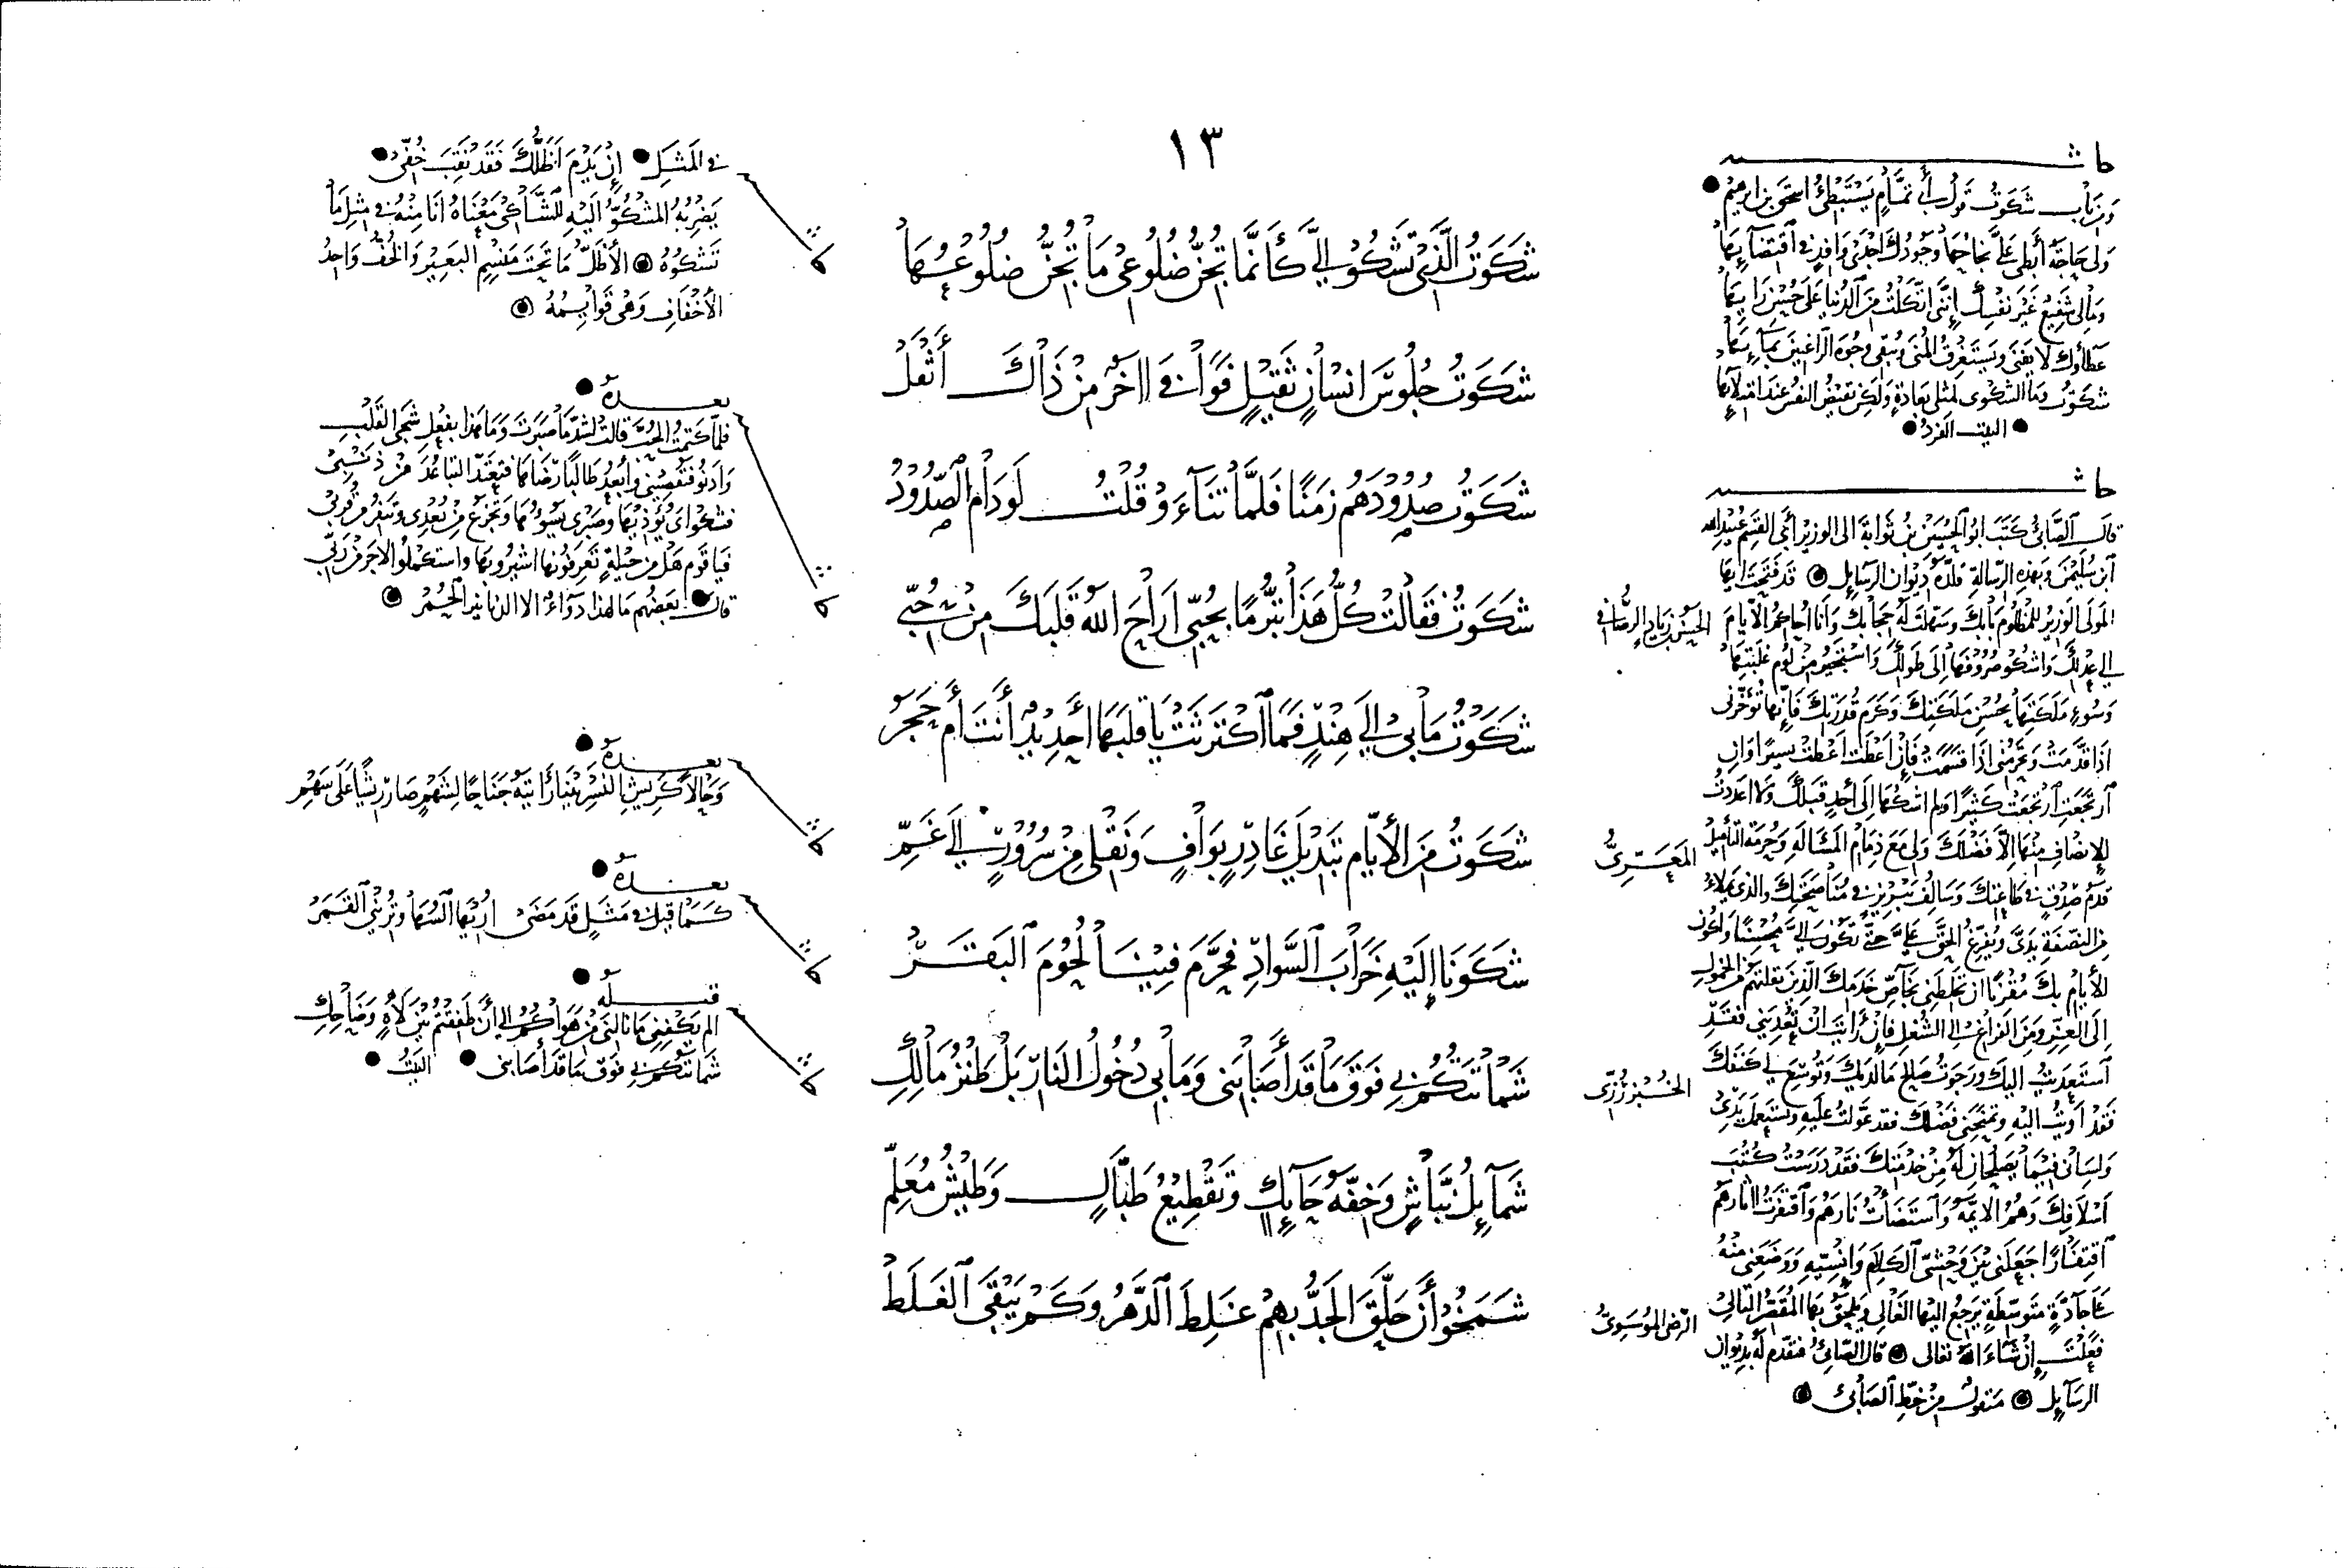 ١٣
حاشية
ومن باب شكوت قول أبي تمام يستبطئ اسحق بن ابرهيم
ولي حاجة أبطى علي نجاحها وجودك اجدى وافد في اقتضائها
ومالي شفيع غير نفسك إنني اتكلت من الدنيا على حسن رائها
عطاؤك لا يفنى ويستغرق المنى ويبقى وجوه الراغبين بمائها
شكوت وما الشكوى لمثلي بعادة ولكن تفيض النفس عند امتلائها
البيت الفرد
حاشية
قال الصابئ كتب ابو الحسين بن ثوابة الى الوزير أبي القسم عبيد الله
ابن سليمن وبهذه الرسالة قلده ديوان الرسايل قد فتحت ايها
المولى الوزير للمظلوم بابك وسهلت له حجابك وأنا احاكم الأيام
إلى عدلك واشكو صروفها إلى طولك واستجير من لوم غلبتها
وسوء ملكتها بحسن ملكتك وكرم قدرتك فإنها تؤخرني
اذا قدمت وتحرمني إذا قسمت فإن اعطت اعطت يسيرا وان
ارتجعت ارتجعت كثيرا ولم اشكها إلى أحد قبلك ولا اعددت
للإنصاف منها إلا فضلك ولي مع ذمام المسألة وحرمة التأميل
قدم صدق في طاعتك وسالف تبريز في مناصحتك والذي يملاء
من النصفة يدي ويفرغ الحق علي حتى تكون إلي محسنا واكون
للأيام بك مقرنا ان تخلطني بخاص خدمك الذين نقلتهم من الخمول
إلى العز ومن الفراغ إلى الشغل فإن رأيت ان تعديني فقد
استعديت اليك ورجوت صالح ما لديك وتوسع لي كنفك
فقد أويت اليه وتمنحني فضلك فقد عولت عليه وتستعمل يدي
ولساني فيما يصلحان له من خدمتك فقد درست كتب
اسلافك وهم الايمة واستضأت نارهم واقتفرت اثارهم
اقتفارا جعلني بين وحشي الكلام وانسيه ووضعني منه
على جادة متوسطة يرجع اليها الغالي ويلحق بها المقصر التالي
فعلت إن شاء الله تعالى قال الصابئ فتقدم له بديوان
الرسايل منقول من خط الصابئ
شكوت الذي تشكو إلي كأنما تجن ضلوعي ما تجن ضلوعها
شكوت جلوس انسان ثقيل فوافى اخر من ذاك أثقل
شكوت صدودهم زمنا فلما تناءوا قلت لو دام الصدود
الحسين بن زياد الرصافي
شكوت فقالت كل هذا تبرما بحبي اراح الله قلبك من حبي
شكوت ما بي إلى هند فما اكترثت يا قلبها أحديد أنت أم حجر
المعري
شكوت من الأيام تبديل غادر بواف ونقلى من سرور إلى غم
شكونا إليه خراب السواد فحرم فينا لحوم البقر
الخبزرزي
شماتتكم بي فوق ما قد أصابني وما بي دخول النار بل طنز مالك
شمايل نباش وخفة حايك وتقطيع طبال وطيش معلم
الرضي الموسوي
شمخوا أن حلق الجد بهم غلط الدهر وكم يبقى الغلط
في المثل إن يدم اظلك فقد نقب خفي
يضربه المشكو اليه للشاكي معناه انا منه في مثل ما
تشكوه الأظل ما تحت منسم البعير والخف واحد
الأخفاف وهي قوايمه
بعده
فلما كتمت الحب قالت لشد ما صبرت وما هذا بفعل شجي القلب
وادنو فتقصيني وأبعد طالبا رضاها فتعتد التباعد من ذنبي
فشكواي يؤذيها وصبري يسوؤها وتجزع من بعدي وتنفر من قربي
فيا قوم هل من حيلة تعرفونها اشيروا بها واستكملوا الاجر من ربي
قال بعضهم ما لهذا دواء الا الدنانير الحمر
بعده
وحالا كريش النسر بينا رأيته جناحا لشهم صار ريشا على سهم
بعده
كما قيل في مثل قد مضى اريها السها وتريني القمر
قبله
الم يكفني ما نالني من هواكم إلى أن طفقتم بين لاه وضاحك
شماتتكم بي فوق ما قد أصابني البيت